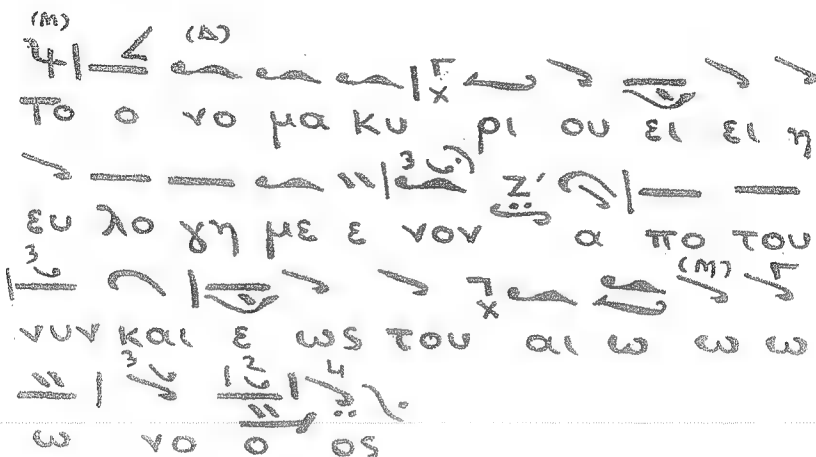 (Μ) (Δ)
Το ο νο μα κυ ρι ου ει ει η
3
ευ λο γη με ε νον α πο του
3 (Μ)
νυν και ε ως του αι ω ω ω
3 2 4
ω νο ο ος